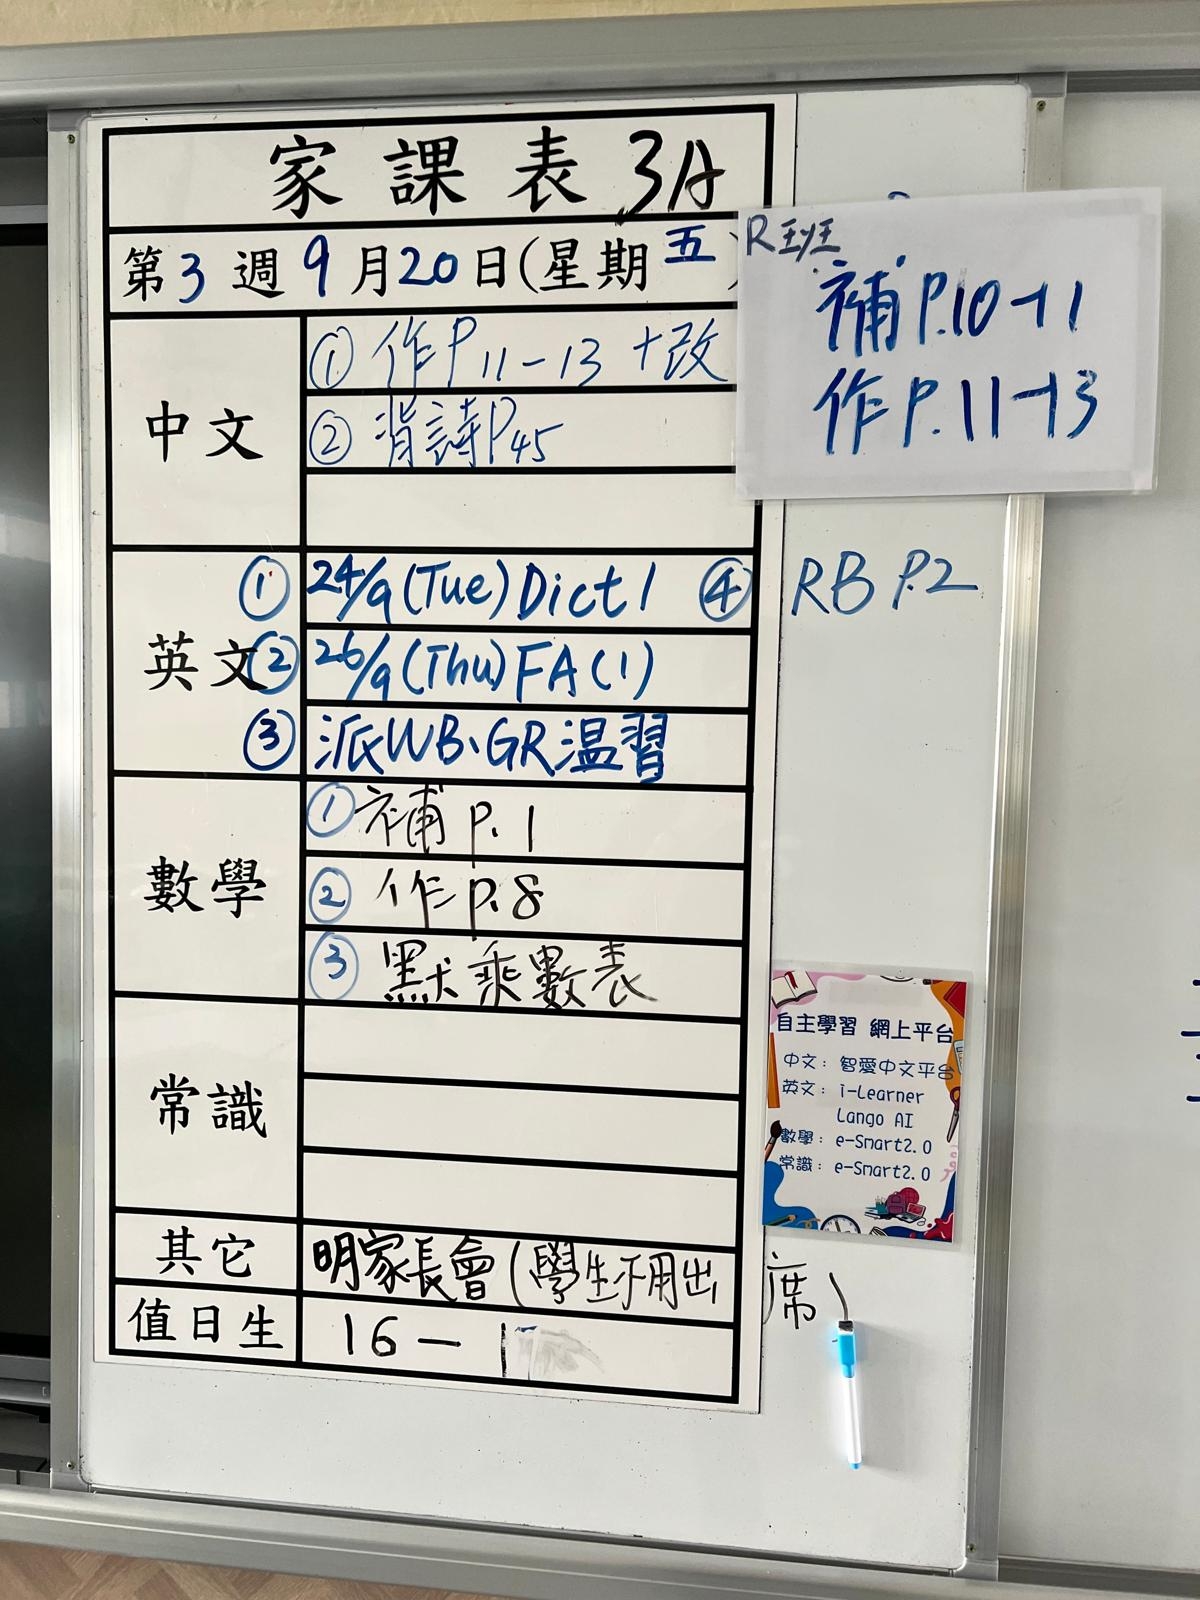 家課表 3A
第3週9月20日(星期五)
中文
① 作P11-13 +改
② 背詩P45
R班
補P.10-11
作P.11-13
英文
① 24/9(Tue) Dict 1 ④ RB P.2
② 26/9(Thu) FA(1)
③ 派WB、GR温習
數學
① 補 P.1
② 作 P.8
③ 默乘數表
常識
其它
明家長會(學生不用出席)
值日生
16 —
自主學習 網上平台
中文: 智愛中文平台
英文: i-Learner
Lango AI
數學: e-Smart2.0
常識: e-Smart2.0